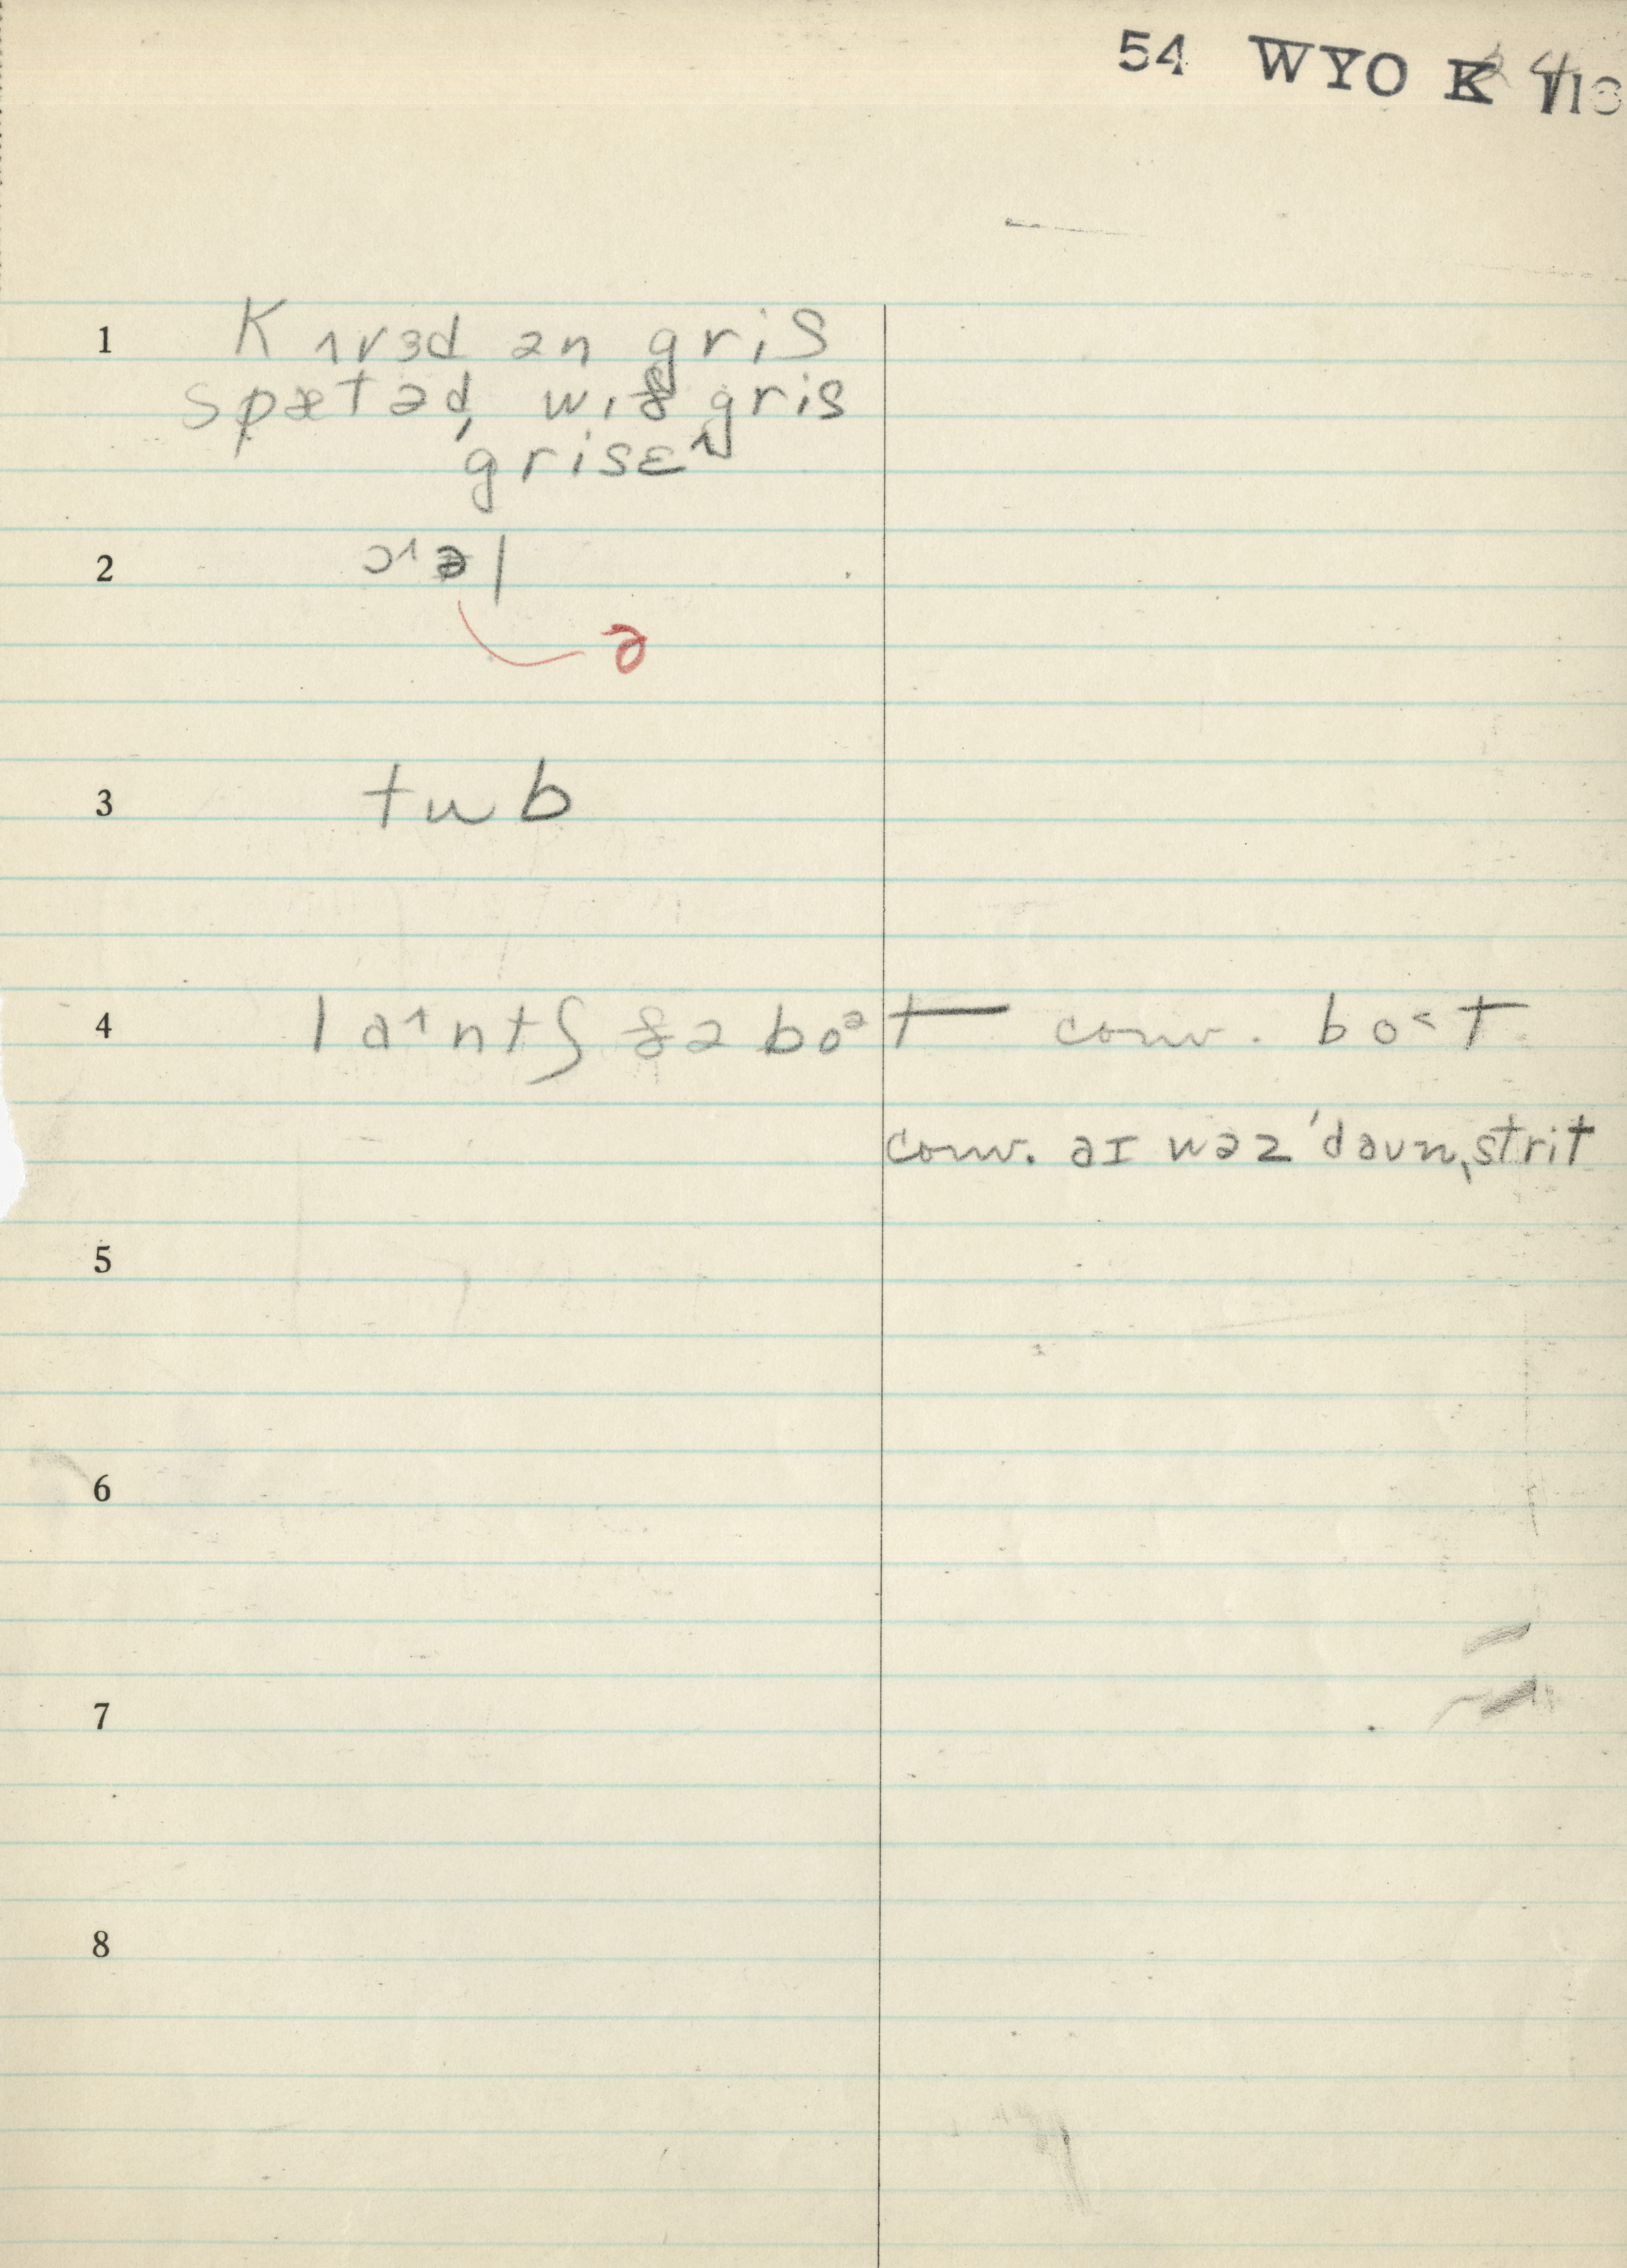 54 WYO K
1 Kʌvɜd ən gris
spætəd, wɪð gris
ˈgrisɛ
2 ɔ˄əl
ə
3 tub
4 la˄ntʃ ðə boᵊt conv. bo˂t
conv. aɪ wəz ˈdaʊnˌstrit
5
6
7
8